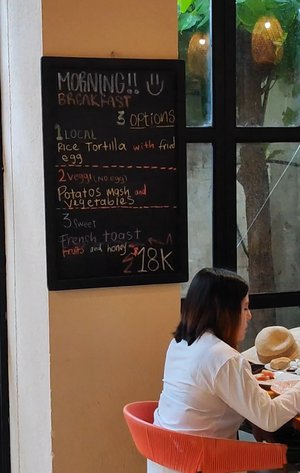 MORNING!!
BREAKFAST
3 options
1 LOCAL
Rice Tortilla with fried
egg
2 veggi (no egg)
Potatos mash and
vegetables
3 sweet
French toast
fruits and honey
18K